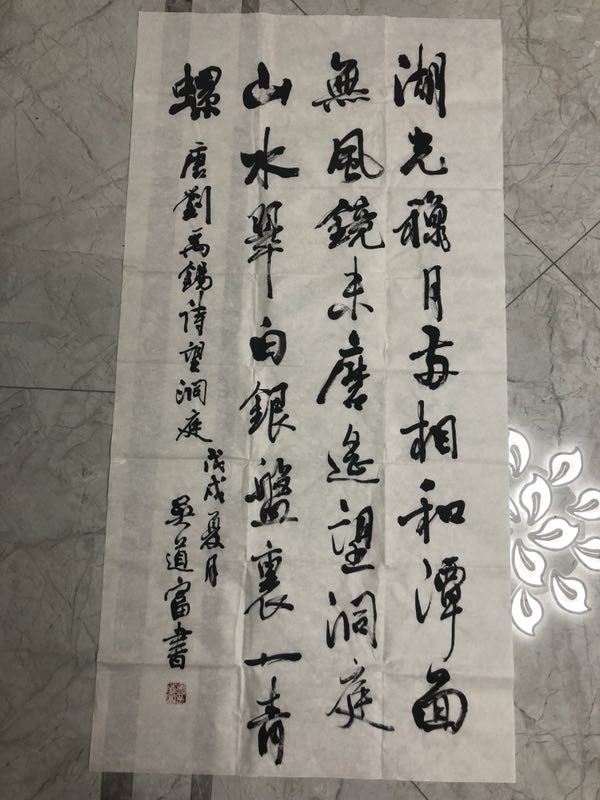 湖光穐月兩相和潭面
無風鏡未磨遙望洞庭
山水翠白銀盤裏一青
螺
唐劉禹錫詩望洞庭
戊戌夏月
吴道富書